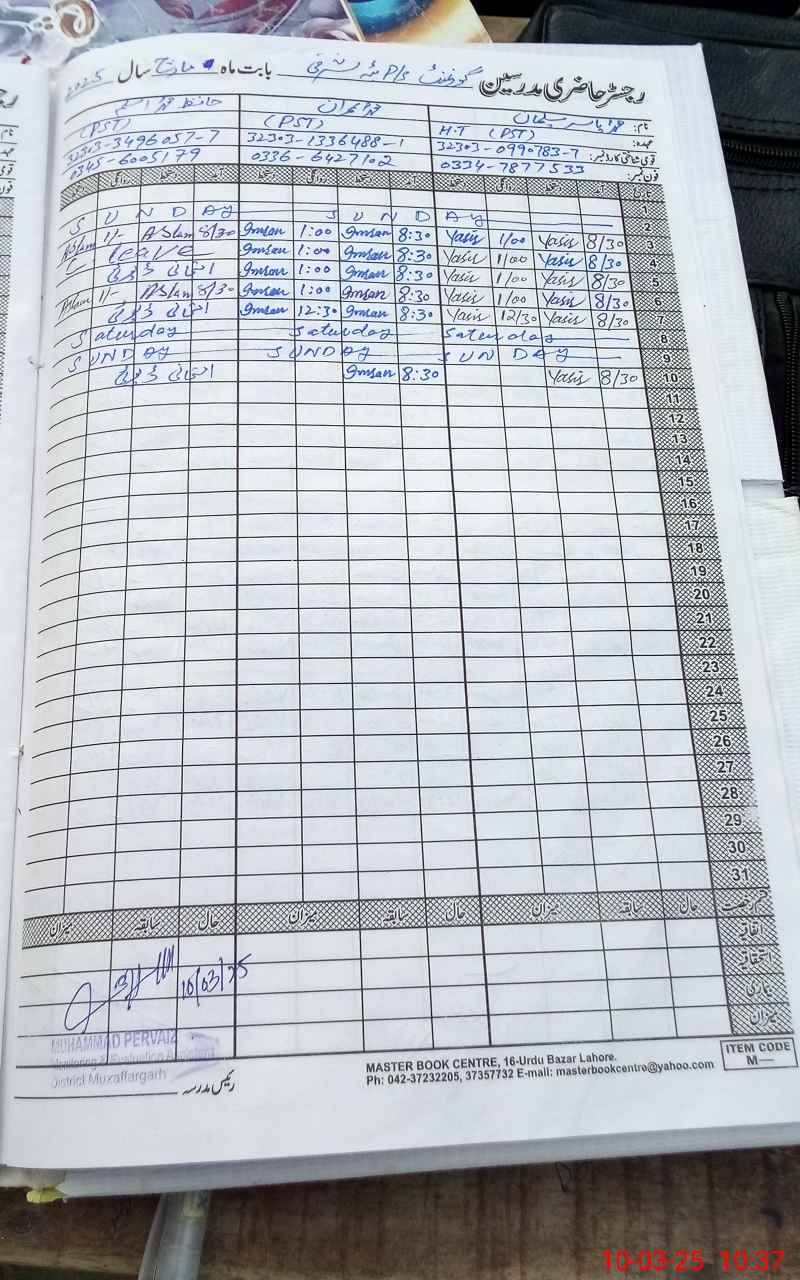 رجسٹر حاضری مدرسین گورنمنٹ P/S شرقی بابت ماہ مارچ سال 2025
نام: محمد یاسر سلیمان محمد عمران حافظ محمد اسلم
عہدہ: H.T (PST) (PST) (PST)
قومی شناختی کارڈ نمبر: 32303-0990783-7 32303-1336488-1 32303-3496057-7
فون نمبر: 0334-7877533 0336-6427102 0345-6005179
آمد دستخط روانگی دستخط آمد دستخط روانگی دستخط آمد دستخط روانگی دستخط
1
2 SUNDAY SUNDAY
3 8/30 Yasir 1/00 Yasir 8:30 Imran 1:00 Imran 8/30 Aslam 1/- Aslam
4 8/30 Yasir 1/00 Yasir 8:30 Imran 1:00 Imran C. leave
5 8/30 Yasir 1/00 Yasir 8:30 Imran 1:00 Imran ڈیوٹی
6 8/30 Yasir 1/00 Yasir 8:30 Imran 1:00 Imran 8/30 Aslam 1/- Aslam
7 8/30 Yasir 12/30 Yasir 8:30 Imran 12:30 Imran ڈیوٹی
8 Saturday Saturday Saturday
9 SUNDAY SUNDAY SUNDAY
10 8/30 Yasir 8:30 Imran ڈیوٹی
11
12
13
14
15
16
17
18
19
20
21
22
23
24
25
26
27
28
29
30
31
قسم رخصت حال سابقہ میزان حال سابقہ میزان حال سابقہ میزان
اتفاقیہ
استحقاقیہ
بیماری
میزان
10/03/25
MUHAMMAD PERVAIZ
Monitoring & Evaluation Assistant
District Muzaffargarh
رئیس مدرسہ
MASTER BOOK CENTRE, 16-Urdu Bazar Lahore.
Ph: 042-37232205, 37357732 E-mail: masterbookcentre@yahoo.com
ITEM CODE
M—
10-03-25 10:37